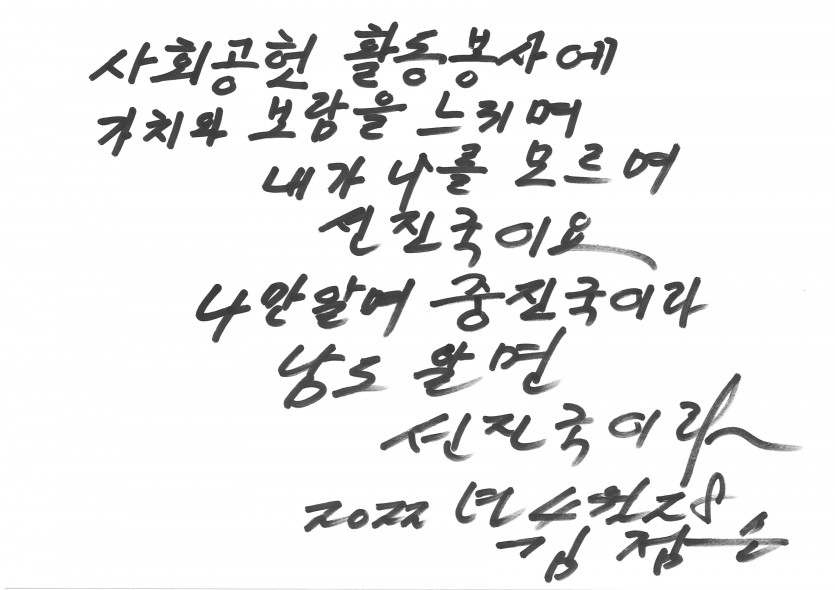 사회공헌 활동봉사에
가치와 보람을 느끼며
내가 나를 모르며
선진국이요
나만알며 중진국이라
남도 알면
선진국이라
2022년 4월 28
김점